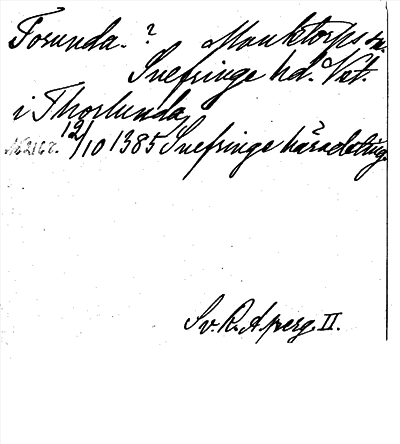 Torunda. ? Munktorps sn.
Snefringe hd. Vst.
i Thorlunda
12/10 1385 Snefringe häradsting
Sv. R. A. perg. II.